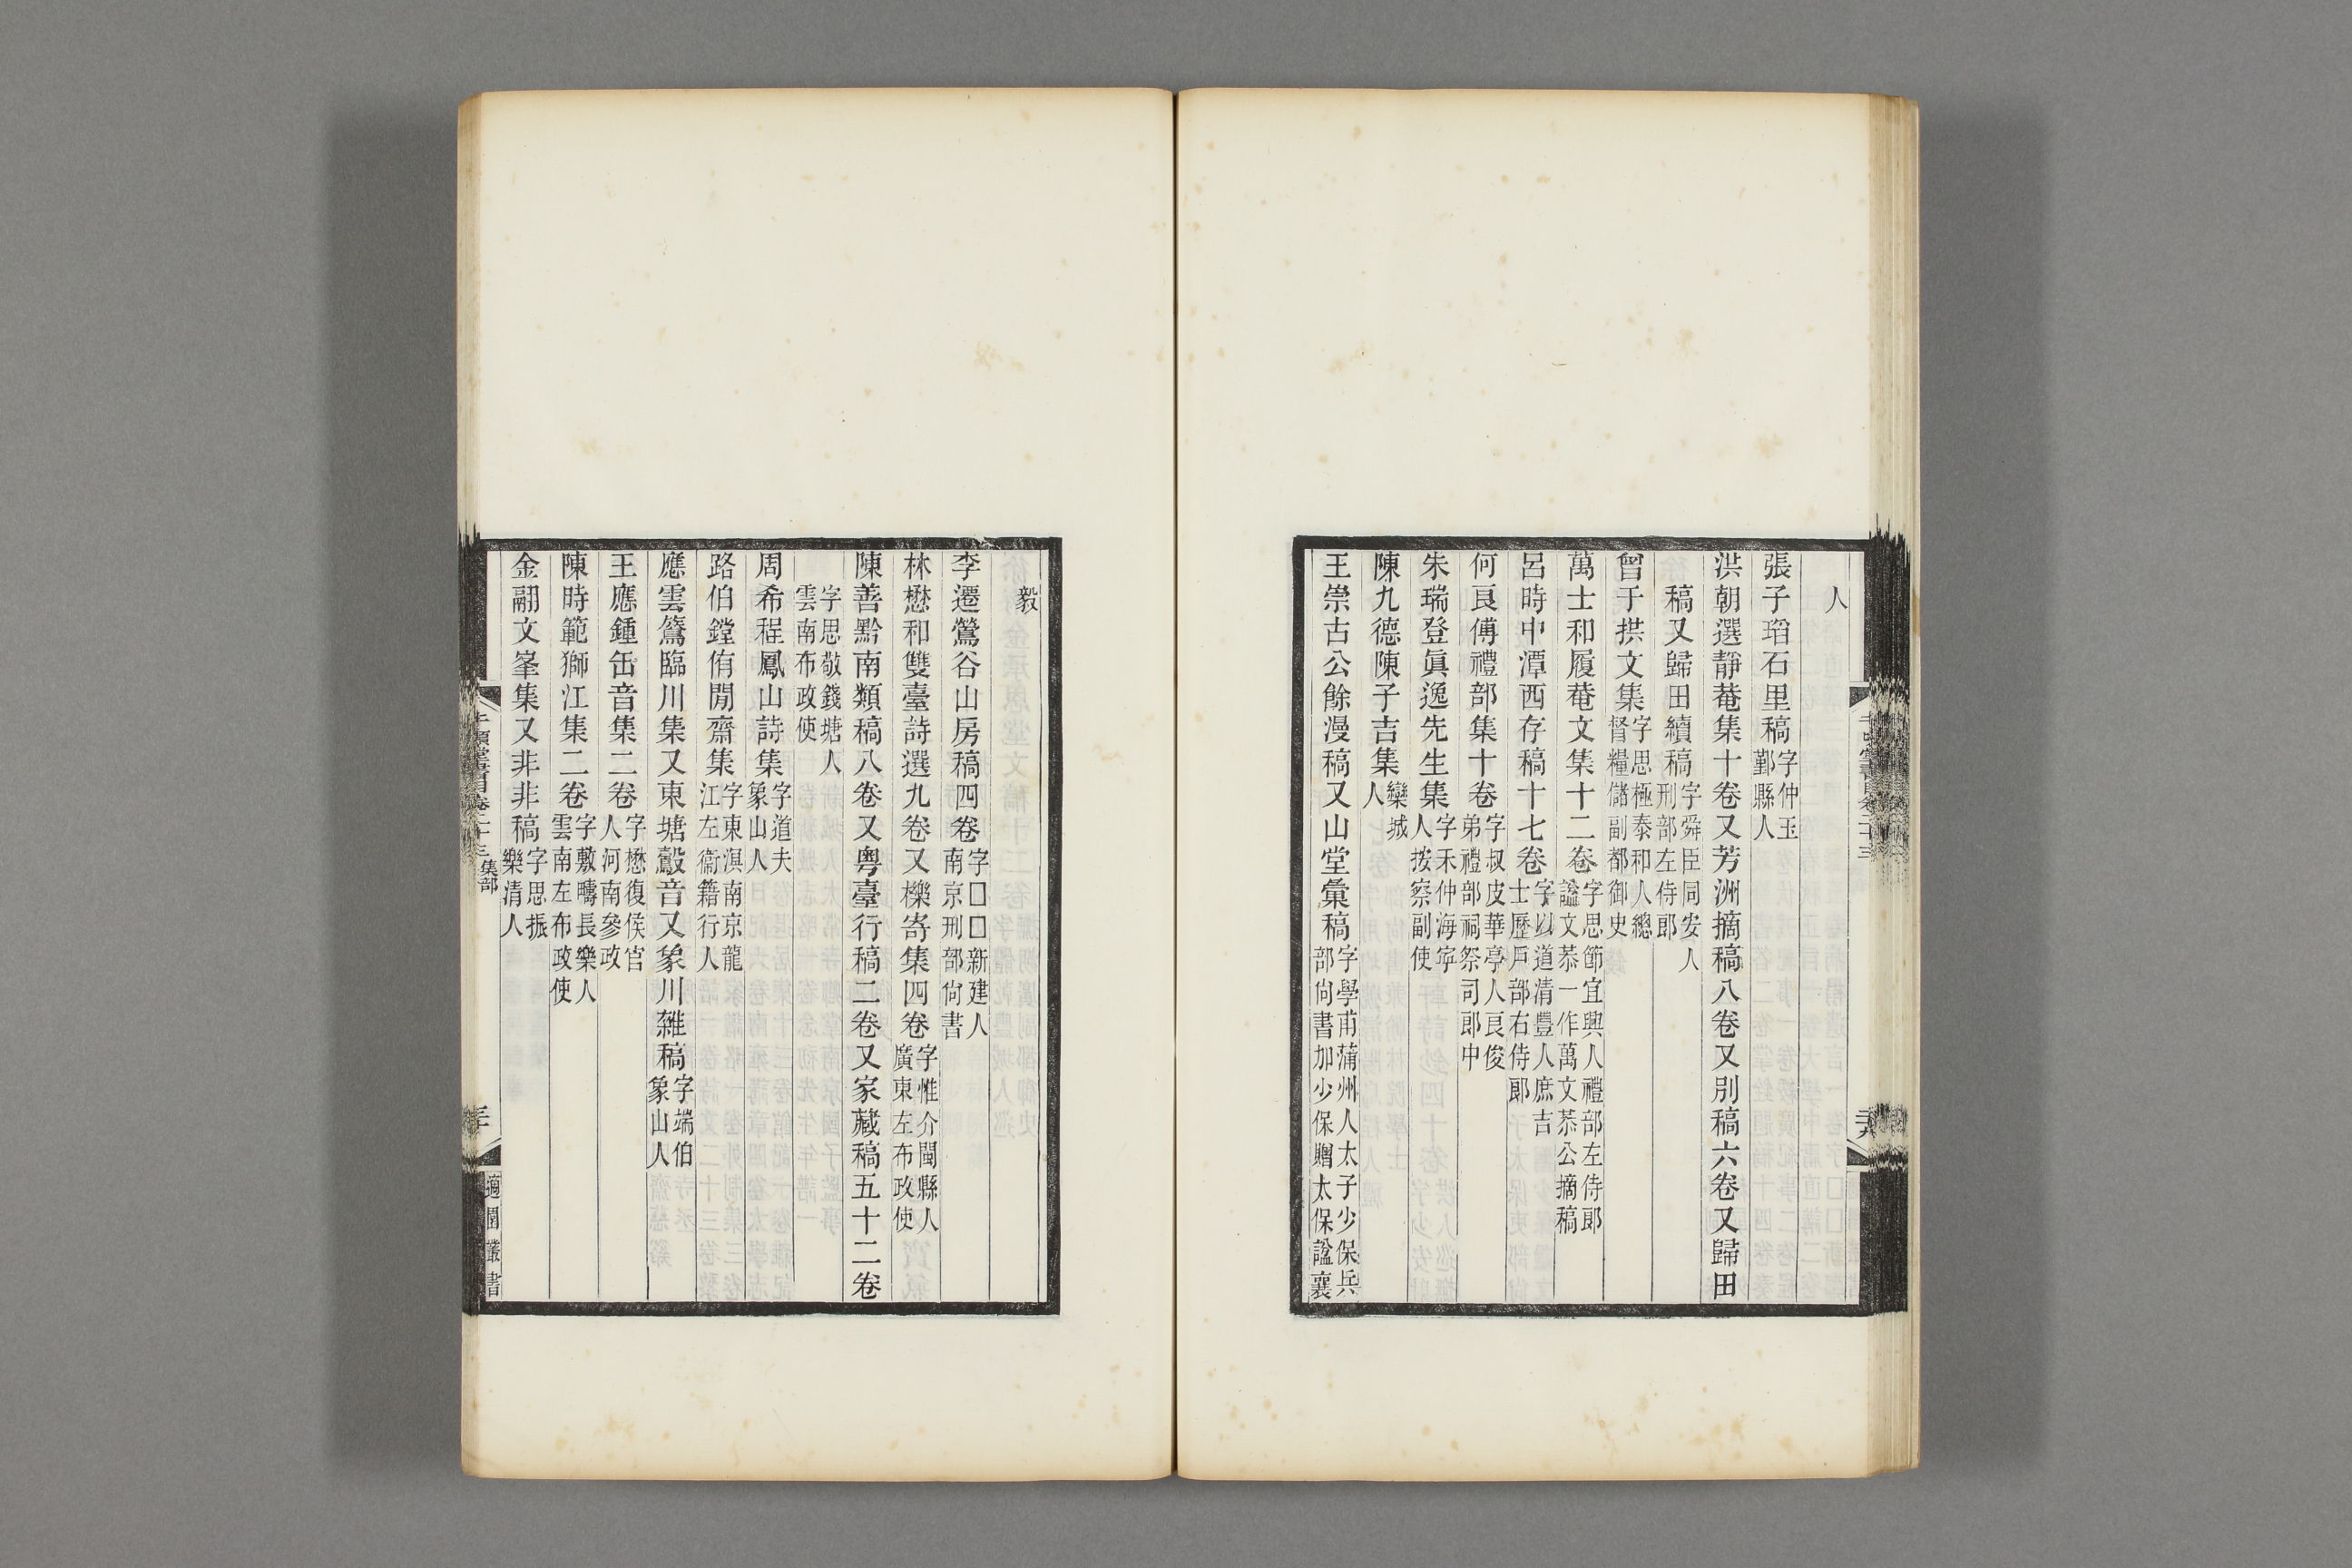 人
張子瑫石里稿字仲玉鄞縣人
洪朝選靜菴集十卷又芳洲摘稿八卷又別稿六卷又歸田
稿又歸田續稿字舜臣同安人刑部左侍郎
曾于拱文集字思極泰和人總督糧儲副都御史
萬士和履菴文集十二卷字思節宜興人禮部左侍郎諡文恭一作萬文恭公摘稿
呂時中潭西存稿十七卷字以道清豐人庶吉士歷戶部右侍郎
何良傅禮部集十卷字叔皮華亭人良俊弟禮部祠祭司郎中
朱瑞登眞逸先生集字禾仲海寧人按察副使
陳九德陳子吉集欒城人
王崇古公餘漫稿又山堂彙稿字學甫蒲州人太子少保兵部尙書加少保贈太保諡襄
毅
李遷鶯谷山房稿四卷字□□新建人南京刑部尙書
林懋和雙臺詩選九卷又櫟寄集四卷字惟介閩縣人廣東左布政使
陳善黔南類稿八卷又粵臺行稿二卷又家藏稿五十二卷
字思敬錢塘人雲南布政使
周希程鳳山詩集字道夫象山人
路伯鏜侑閒齋集字東淇南京龍江左衞籍行人
應雲鷟臨川集又東塘鷇音又象川雜稿字端伯象山人
王應鍾缶音集二卷字懋復侯官人河南參政
陳時範獅江集二卷字敷疇長樂人雲南左布政使
金翮文峯集又非非稿字思振樂清人
千頃堂書目卷二十三 集部
三十
適園叢書